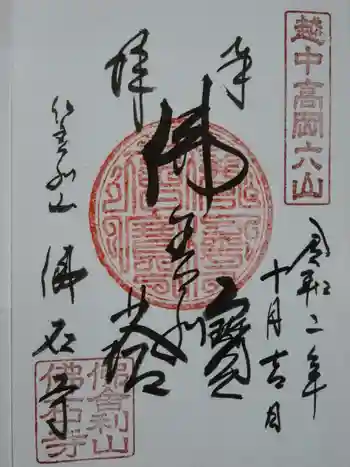 越中高岡六山
令和二年
十月吉日
奉拝
佛舎利
寳塔
仏舎利山
佛石寺
佛舎利山
佛石寺